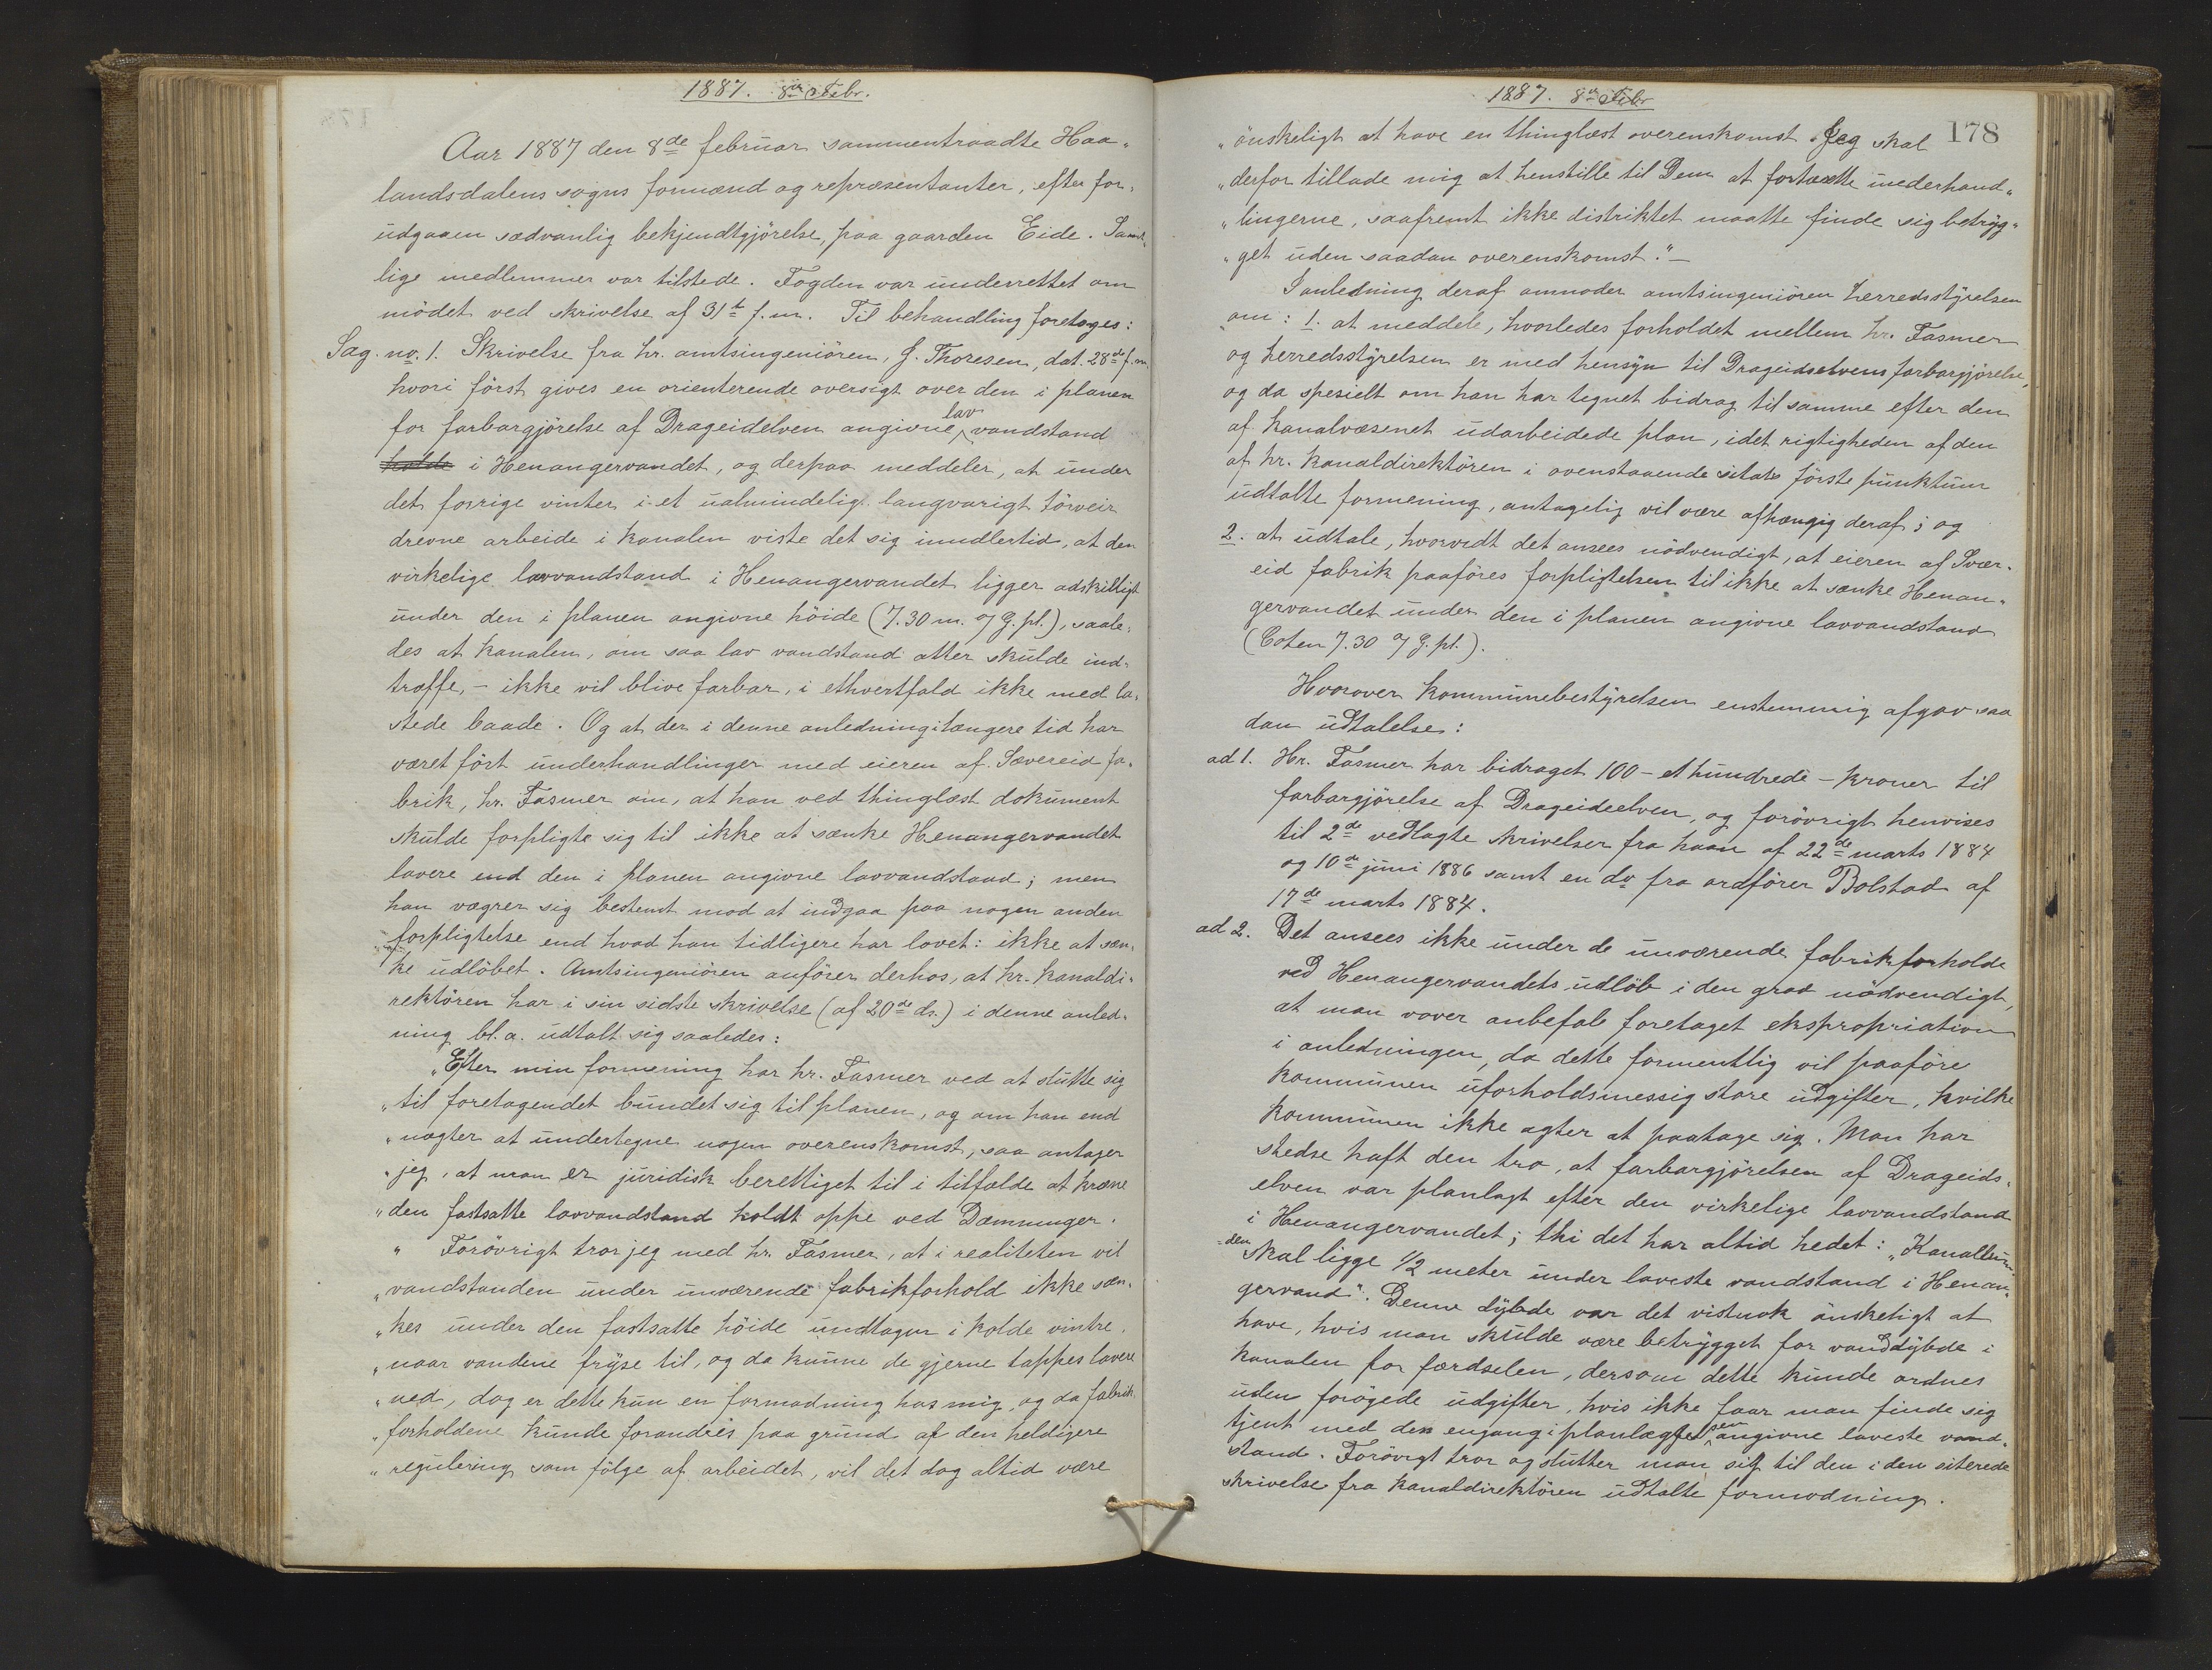 1887. 8de Febr.
Aar 1887 den 8de februar sammentraadte Haa-
landsdalens sogns formænd og repræsentanter, efter for-
udgaaen sædvanlig bekjendtgjörelse, paa gaarden Eide. Samt-
lige medlemmer var tilstede. Fogden var underrettet om
mödet ved skrivelse af 31te f.m. Til behandling foretoges:
Sag no. 1. Skrivelse fra hr. amtsingeniören, J. Thoresen, dat. 28de f.m.
hvori först gives en orienterende oversigt over den i planen
for farbargjörelse af Drageidelven angivne lav vandstand
holde i Henangervandet, og derpaa meddeler, at under
det forrige vinter i et ualmindeligt langvarigt törveir
drevne arbeide i kanalen viste det sig imidlertid, at den
virkelige lavvandstand i Henangervandet ligger adskilligt
under den i planen angivne höide (7.30 m. o/ G. pl.), saale-
des at kanalen, om saa lav vandstand atter skulde ind-
træffe, - ikke vil blive farbar, i ethvertfald ikke med la-
stede baade. Og at der i denne anledning i længere tid har
været fört underhandlinger med eieren af Sævereid fa-
brik, hr. Fasmer om, at han ved thinglæst dokument
skulde forpligte sig til ikke at sænke Henangervandet
lavere end den i planen angivne lavvandstand; men
han vægrer sig bestemt mod at indgaa paa nogen anden
forpligtelse end hvad han tidligere har lovet: ikke at sæn-
ke udlöbet. Amtsingeniören anförer derhos, at hr. kanaldi-
rektören har i sin sidste skrivelse (af 20de ds.) i denne anled-
ning bl. a. udtalt sig saaledes:
"Efter min formening har hr. Fasmer ved at slutte sig
"til foretagendet bundet sig til planen, og om han end
"nægter at undertegne nogen overenskomst, saa antager
"jeg, at man er juridisk berettiget til i tilfælde at kræve
"den fastsatte lavvandstand holdt oppe ved Dæmninger.
" Forövrigt tror jeg med hr. Fasmer, at i realiteten vil
"vandstanden under nuværende fabrikforhold ikke sæn-
"kes under den fastsatte höide undtagen i kolde vintre,
"naar vandene fryse til, og da kunne de gjerne tappes lavere
"ned, dog er dette kun en formodning hos mig, og da fabrik-
"forholdene kunde forandres paa grund af den heldigere
"regulering som fölge af arbeidet, vil det dog altid være
1887. 8de Febr
178
"önskeligt at have en thinglæst overenskomst. Jeg skal
"derfor tillade mig at henstille til Dem at fortsætte underhand-
"lingerne, saafremt ikke distriktet maatte finde sig betryg-
"get uden saadan overenskomst." -
I anledning deraf anmoder amtsingeniören herredsstyrelsen
om: 1. at meddele, hvorledes forholdet mellem hr. Fasmer
og herredsstyrelsen er med hensyn til Drageidselvens farbargjörelse,
og da spesielt om han har tegnet bidrag til samme efter den
af kanalvæsenet udarbeidede plan, idet rigtigheden af den
af hr. kanaldirektören i ovenstaaende sitats förste punktum
udtalte formening, antagelig vil være afhængig deraf; og
2. at udtale, hvorvidt det ansees nödvendigt, at eieren af Svær-
eid fabrik paaföres forpligtelsen til ikke at sænke Henan-
gervandet under den i planen angivne lavvandstand
(Coten 7.30 o/ G. pl.).
Hvorover kommunebestyrelsen enstemmig afgav saa
dan udtalelse:
ad 1. Hr. Fasmer har bidraget 100 - et hundrede - kroner til
farbargjörelse af Drageideelven, og forövrigt henvises
til 2de vedlagte skrivelser fra haan af 22de marts 1884
og 10de juni 1886 samt en do fra ordförer Bolstad af
17de marts 1884.
ad 2. Det ansees ikke under de nuværende fabrikforholde
ved Henangervandets udlöb i den grad nödvendigt,
at man vover anbefale foretaget ekspropriation
i anledningen, da dette formentlig vil paaföre
kommunen uforholdsmessig store udgifter, hvilke
kommunen ikke agter at paatage sig. Man har
stedse haft den tro, at farbargjörelsen af Drageids-
elven var planlagt efter den virkelige lavvandstand
i Henangervandet; thi det har altid hedet: "Kanalbun-
=den skal ligge 1/2 meter under laveste vandstand i Henan-
gervand". Denne dybde var det vistnok önskeligt at
have, hvis man skulde være betrygget for vanddybde i
kanalen for færdselen, dersom dette kunde ordnes
uden forögede udgifter, hvis ikke faar man finde sig
tjent med den engang i planlægsen angivne laveste vand-
stand. Forövrigt tror og slutter man sig til den i den siterede
skrivelse fra kanaldirektören udtalte formodning.